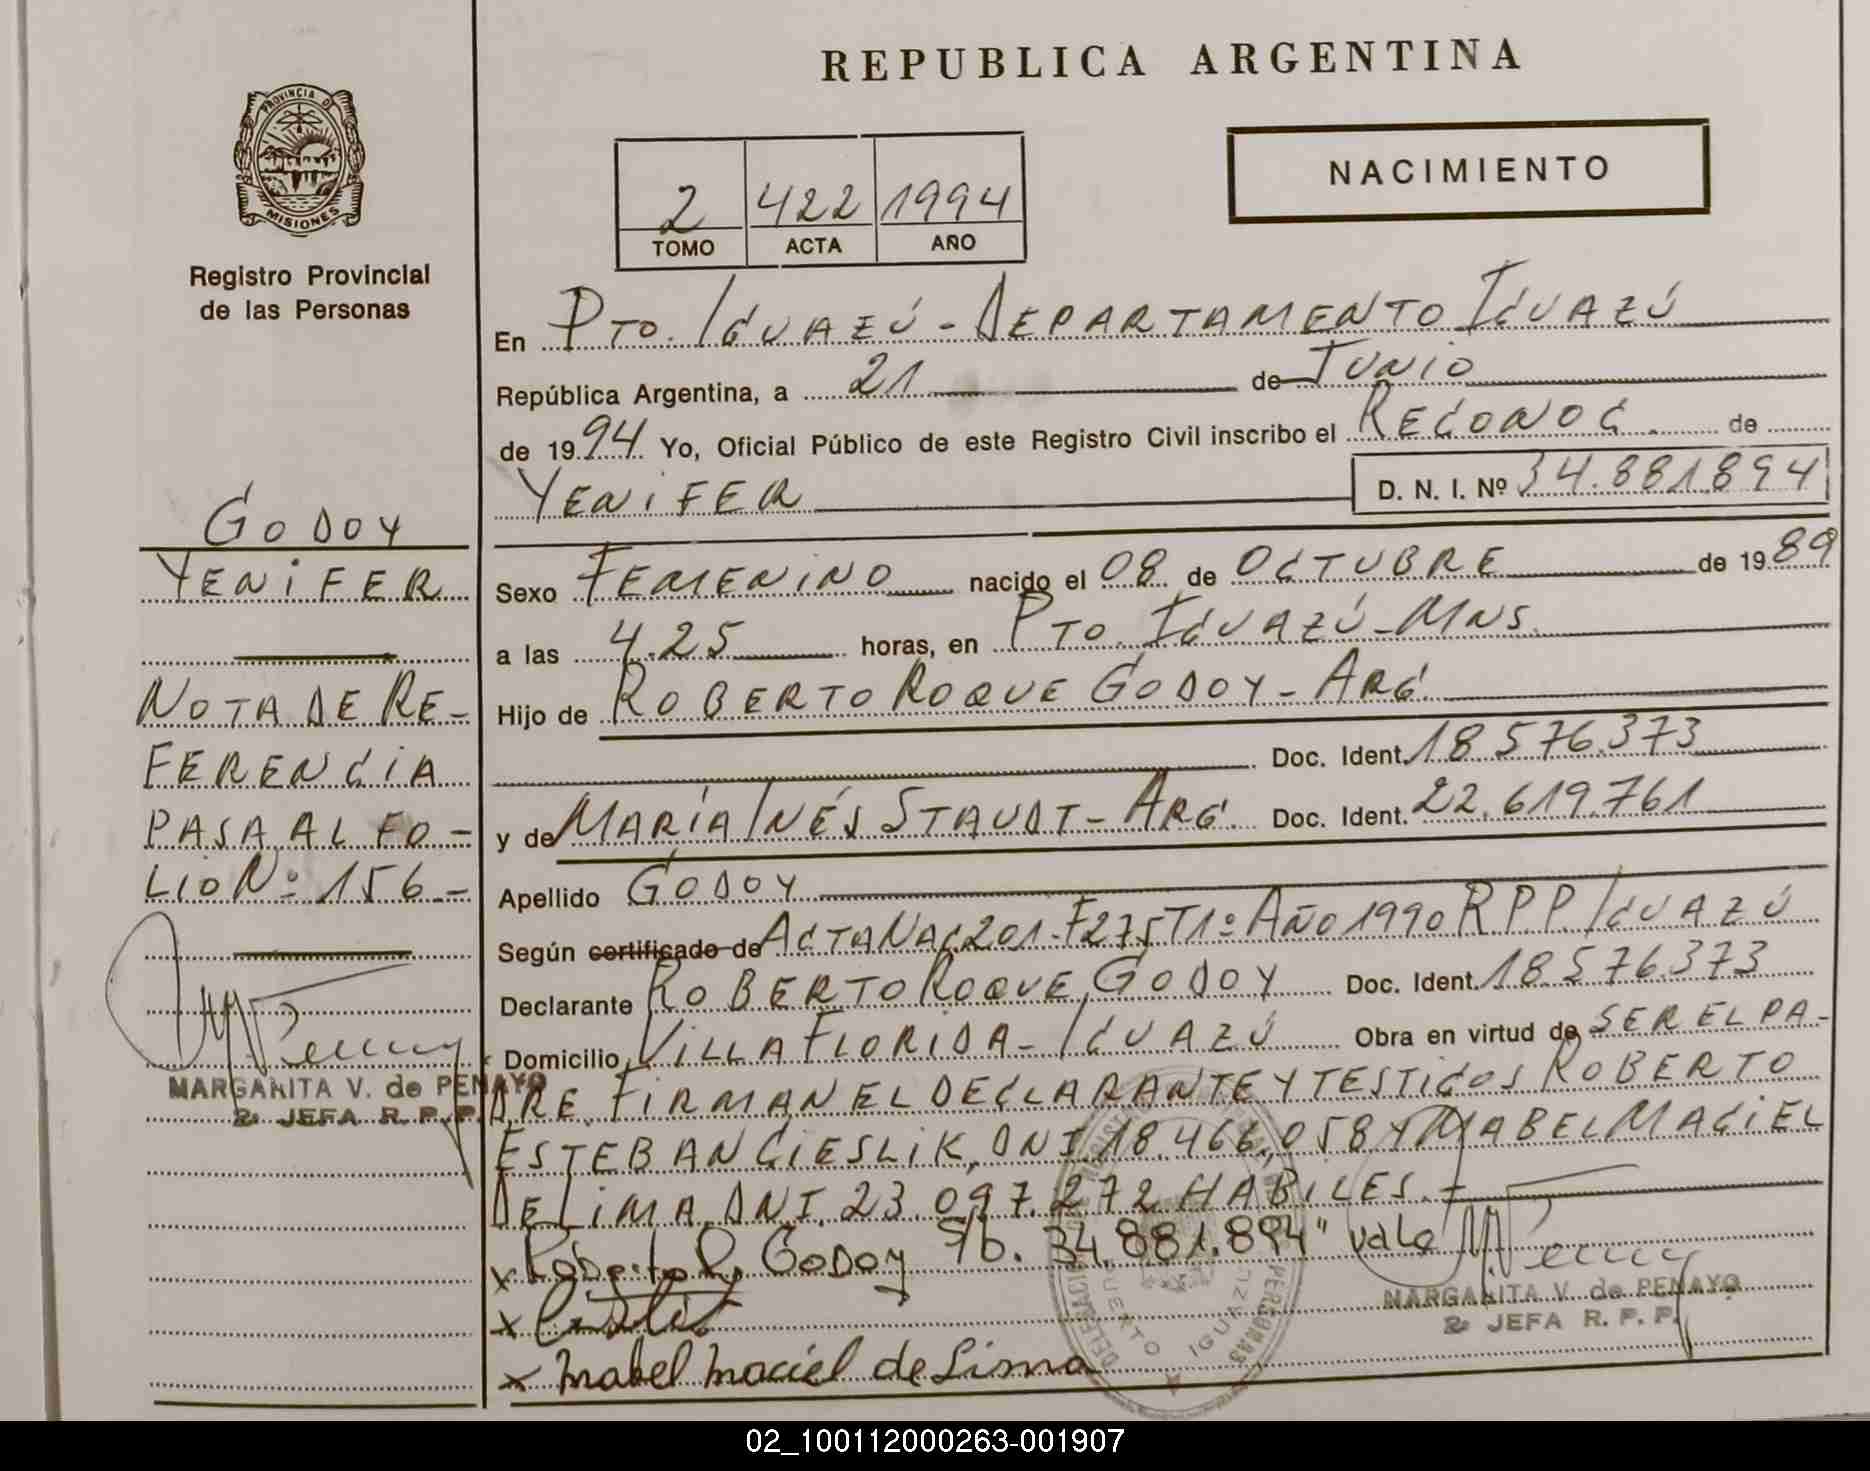 REPUBLICA ARGENTINA
PROVINCIA D
MISIONES
Registro Provincial
de las Personas
2 422 1994
TOMO ACTA AÑO
NACIMIENTO
En PTO. IGUAZÚ - DEPARTAMENTO IGUAZÚ
República Argentina, a 21 de JUNIO
de 1994 Yo, Oficial Público de este Registro Civil inscribo el RECONOC. de
YENIFER D. N. I. Nº 34.881.894
Sexo FEMENINO nacido el 08 de OCTUBRE de 1989
a las 4.25 horas, en PTO. IGUAZÚ - MNS.
Hijo de ROBERTO ROQUE GODOY - ARG.
Doc. Ident. 18.576.373
y de MARÍA INÉS STAUDT - ARG. Doc. Ident. 22.619.761
Apellido GODOY
Según certificado de ACTA NAC 201 - F275 T1º AÑO 1990 RPP IGUAZÚ
Declarante ROBERTO ROQUE GODOY Doc. Ident. 18.576.373
Domicilio VILLA FLORIDA - IGUAZÚ Obra en virtud de SER EL PA-
DRE. FIRMAN EL DECLARANTE Y TESTIGOS ROBERTO
ESTEBAN CIESLIK, DNI 18.466.058 Y MABEL MACIEL
DE LIMA, DNI. 23.097.272 HABILES.-
x Roberto R. GODOY S/b. 34.881.894" vale
x
x Mabel Maciel de Lima
MARGARITA V. de PENAYO
2ª JEFA R. P. P.
DELEGACION
PERSONAS
PUERTO IGUAZU
GODOY
YENIFER
NOTA DE RE-
FERENCIA
PASA AL FO-
LIO Nº 156.-
MARGARITA V. de PENAYO
2ª JEFA R. P. P.
02_100112000263-001907